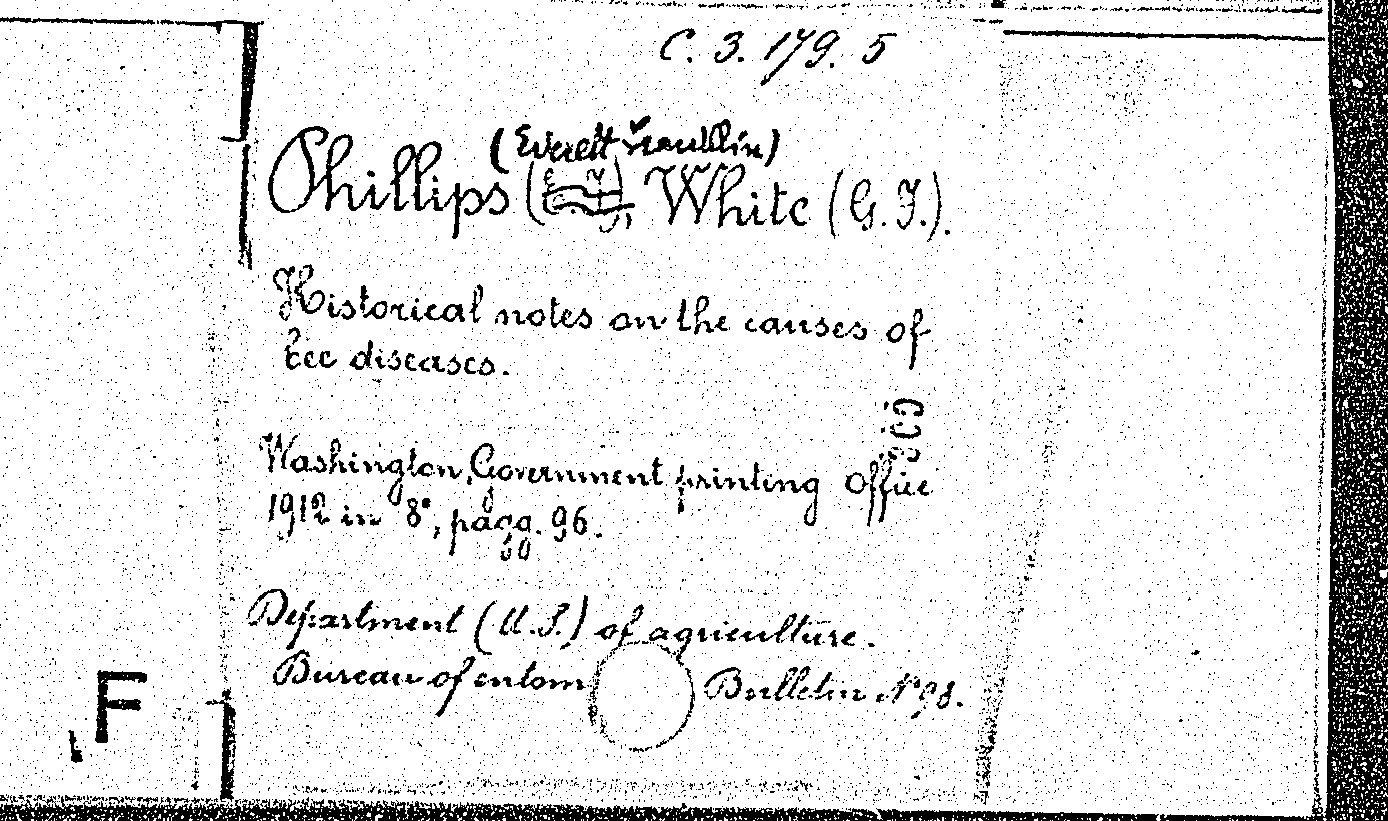 C. 3. 179. 5
(Everett Franklin)
Phillips White (G. F.).
Historical notes on the causes of
bee diseases.
Washington, Government printing office
1912 in 8°, pagg. 96.
Department (U.S.) of agriculture.
Bureau of entom Bulletin N° 98.
F